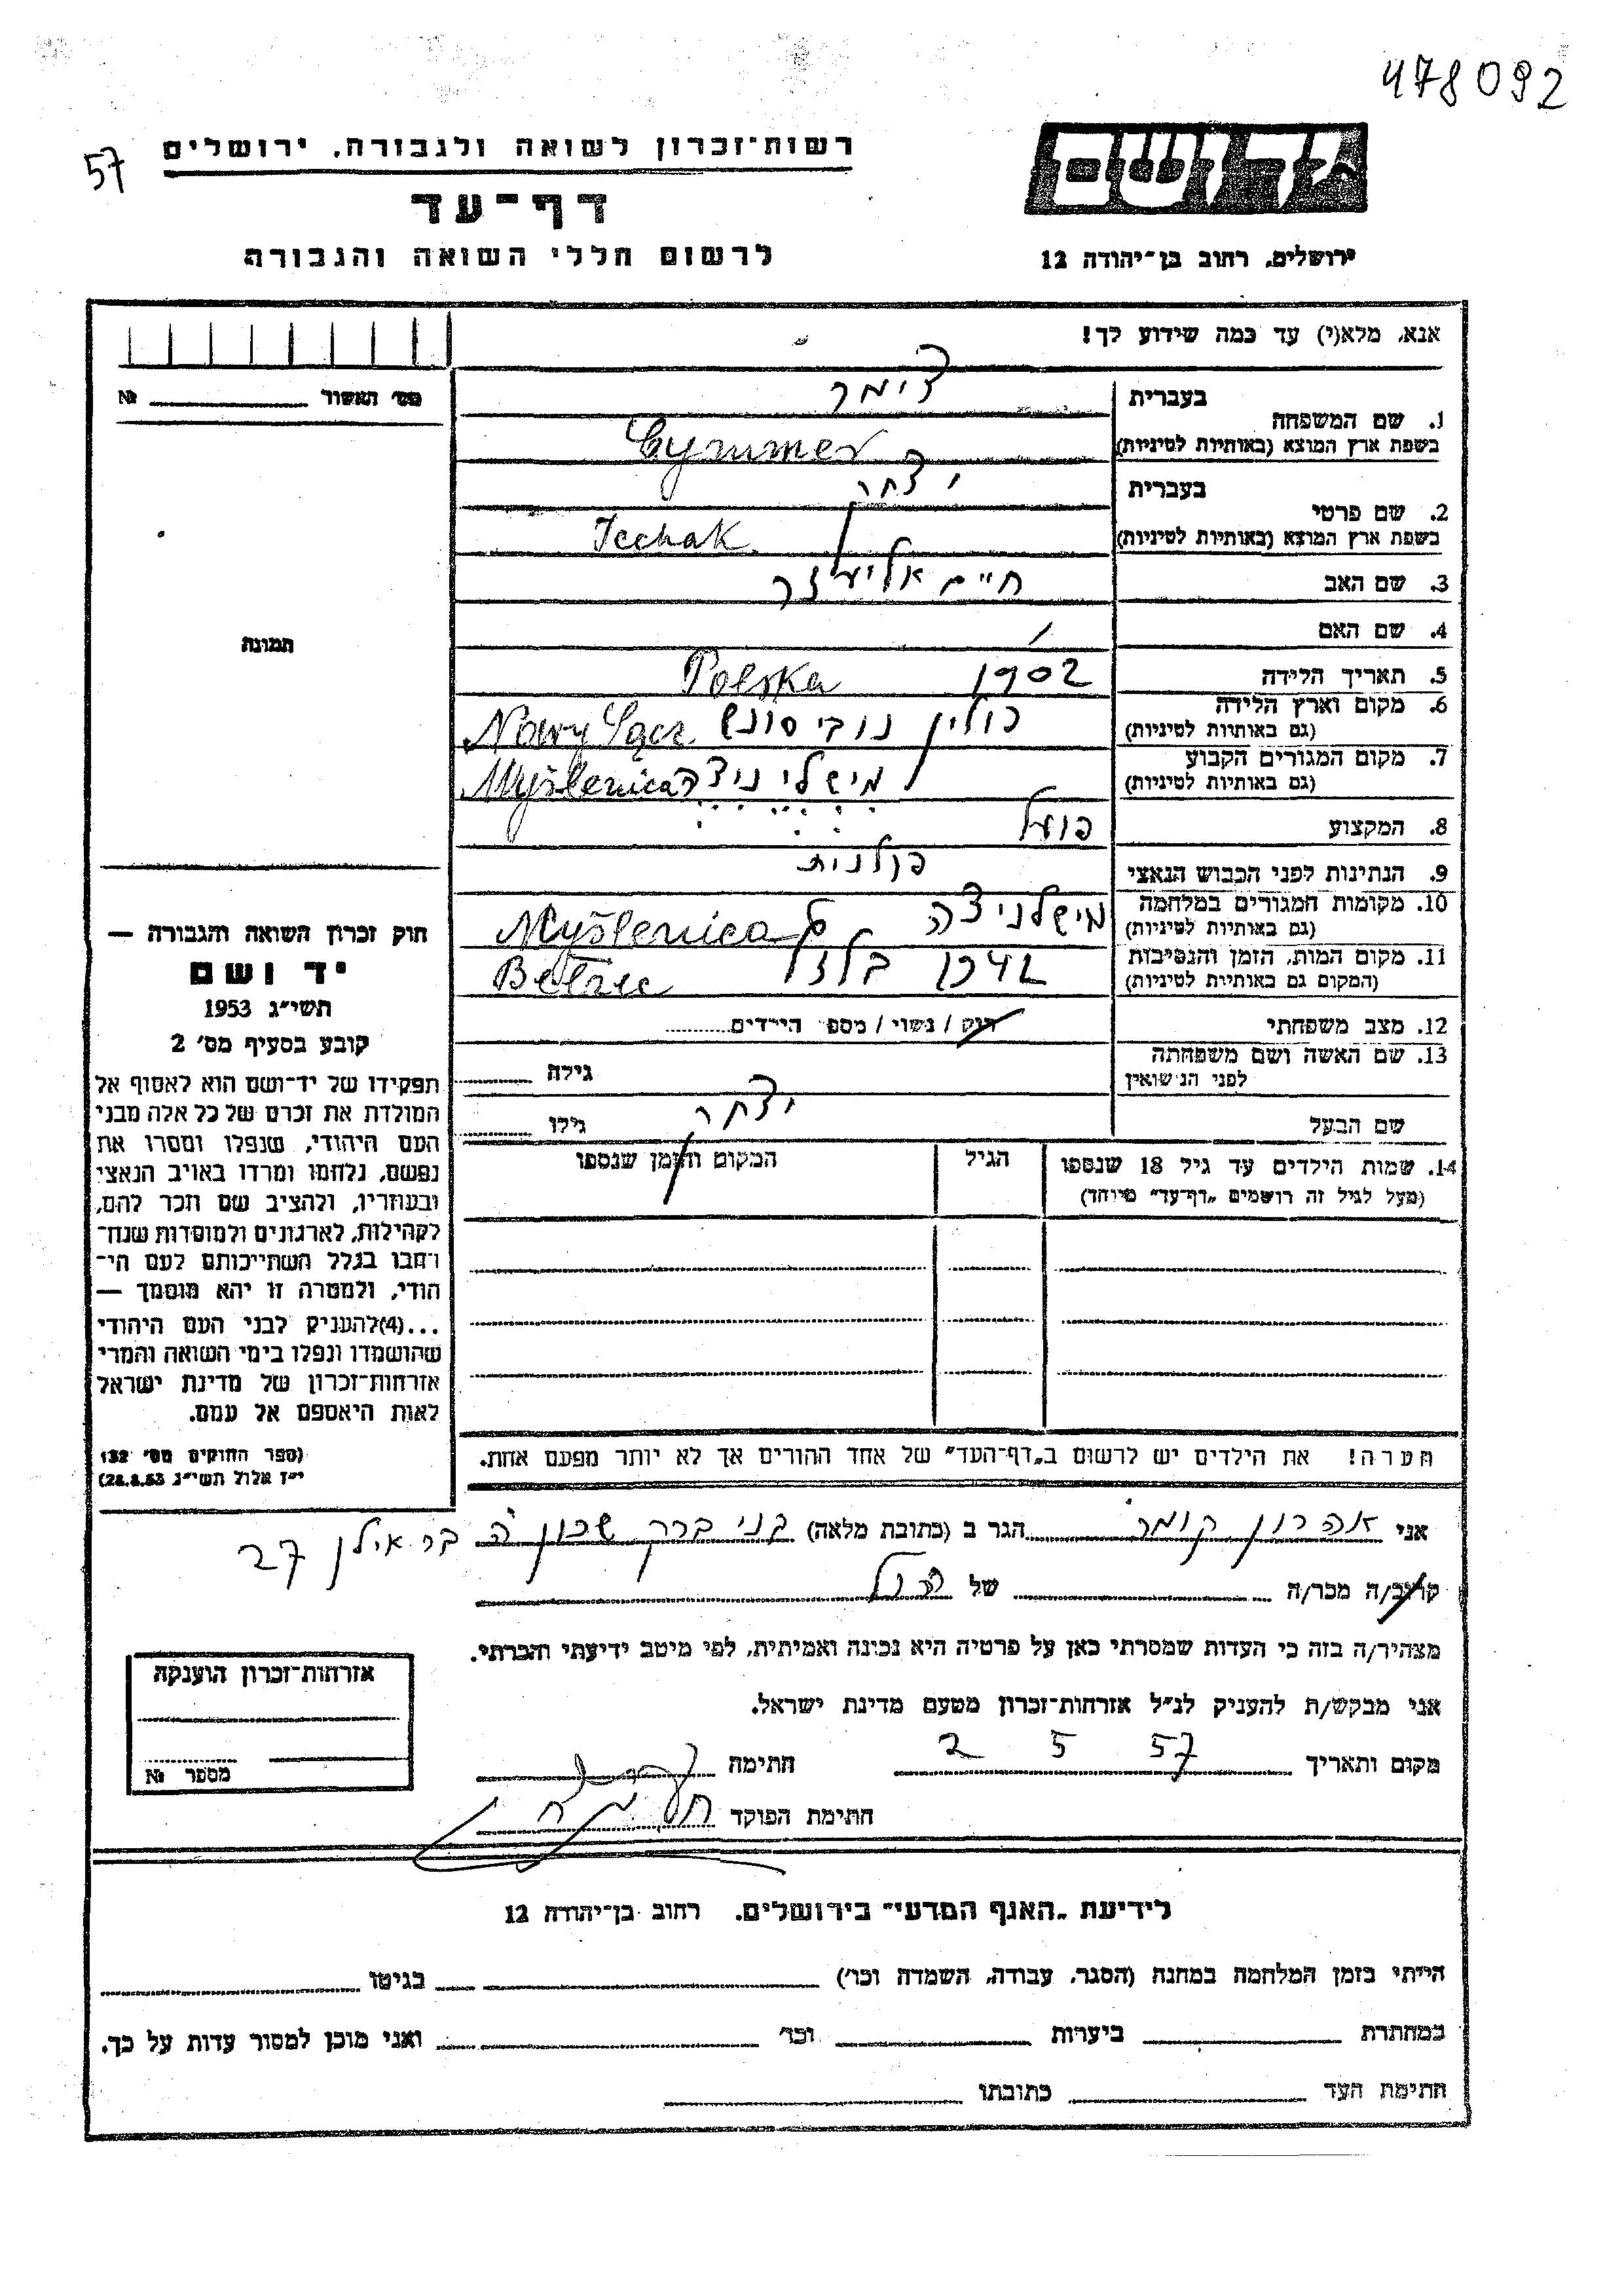 478092
57
רשות־זכרון לשואה ולגבורה, ירושלים
דף־עד
לרשום חללי השואה והגבורה
יד ושם
ירושלים, רחוב בן־יהודה 12
אנא, מלא(י) עד כמה שידוע לך!
מס׳ האשור № 
תמונה
1. שם המשפחה
בעברית צימר
בשפת ארץ המוצא (באותיות לטיניות) Cymmer
2. שם פרטי
בעברית יצחק
בשפת ארץ המוצא (באותיות לטיניות) Icchak
3. שם האב חיים אליעזר
4. שם האם /
5. תאריך הלידה 1902 Polska
6. מקום וארץ הלידה פולין נובי סונש Nowy Sącz
(גם באותיות לטיניות)
7. מקום המגורים הקבוע מישליניצה Myślenica
(גם באותיות לטיניות)
8. המקצוע פועל
9. הנתינות לפני הכבוש הנאצי פולנית
10. מקומות המגורים במלחמה מישלניצה Myślenica
(גם באותיות לטיניות)
11. מקום המות, הזמן והנסיבות 1942 בלזץ Bełzec
(המקום גם באותיות לטיניות)
12. מצב משפחתי רוק / נשוי / מספר הילדים
13. שם האשה ושם משפחתה
לפני הנישואין גילה
שם הבעל יצחק גילו
14. שמות הילדים עד גיל 18 שנספו הגיל המקום והזמן שנספו
(מעל לגיל זה רושמים „דף־עד״ מיוחד)
חוק זכרון השואה והגבורה —
יד ושם
תשי״ג 1953
קובע בסעיף מס׳ 2
תפקידו של יד־ושם הוא לאסוף אל
המולדת את זכרם של כל אלה מבני
העם היהודי, שנפלו ומסרו את
נפשם, נלחמו ומרדו באויב הנאצי
ובעוזריו, ולהציב שם וזכר להם,
לקהילות, לארגונים ולמוסדות שנח־
רבו בגלל השתייכותם לעם הי־
הודי, ולמטרה זו יהא מוסמך —
...(4)להעניק לבני העם היהודי
שהושמדו ונפלו בימי השואה והמרי
אזרחות־זכרון של מדינת ישראל
לאות היאספם אל עמם.
(ספר החוקים מס׳ 132
י״ז אלול תשי״ג 28.8.53)
הערה! את הילדים יש לרשום ב„דף־העד״ של אחד ההורים אך לא יותר מפעם אחת.
אני אהרון קומר הגר ב (כתובת מלאה) בני ברק שכון ה׳ בר אילן 27
קרוב/ה מכר/ה של הנ״ל
מצהיר/ה בזה כי העדות שמסרתי כאן על פרטיה היא נכונה ואמיתית, לפי מיטב ידיעתי והכרתי.
אני מבקש/ת להעניק לנ״ל אזרחות־זכרון מטעם מדינת ישראל.
מקום ותאריך 2 5 57 חתימה
חתימת הפוקד
אזרחות־זכרון הוענקה
מספר №
לידיעת „האגף המדעי״ בירושלים, רחוב בן־יהודה 12
הייתי בזמן המלחמה במחנה (הסגר, עבודה, השמדה וכו׳) בגיטו
במחתרת ביערות וכו׳ ואני מוכן למסור עדות על כך.
חתימת העד כתובתו